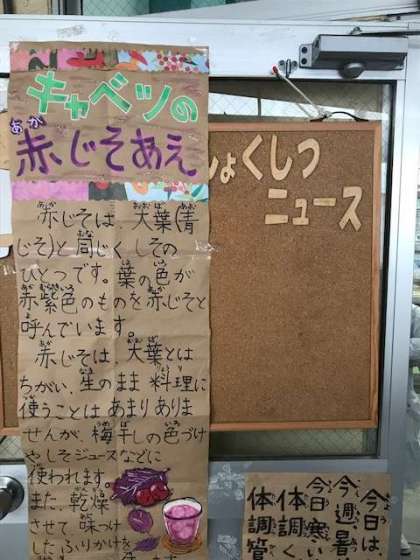 キャベツの
赤じそあえ
赤じそは、大葉(青
じそ)と同じく しその
ひとつです。葉の色が
赤紫色のものを赤じそと
呼んでいます。
赤じそは、大葉とは
ちがい、生のまま料理に
使うことは あまりありま
せんが、梅干しの色づけ
やしそジュースなどに
使われます。
また、乾燥
させて 味つけ
したふりかけを
しょくしつ
ニュース
今日は、
今週暑
今日寒い
体調
体調管